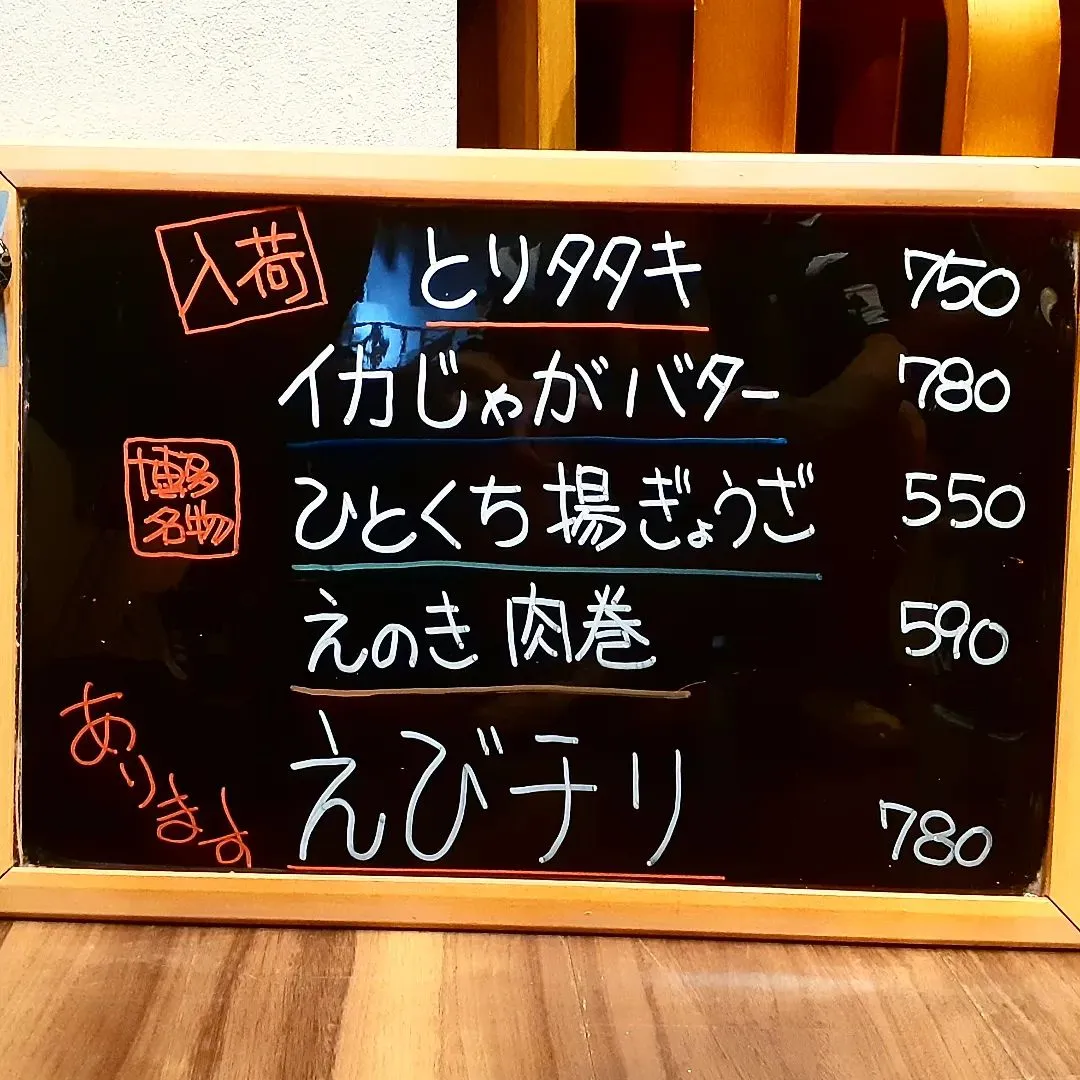 入荷 とりタタキ 750
イカじゃがバター 780
博多名物 ひとくち揚ぎょうざ 550
えのき肉巻 590
あります えびチリ 780